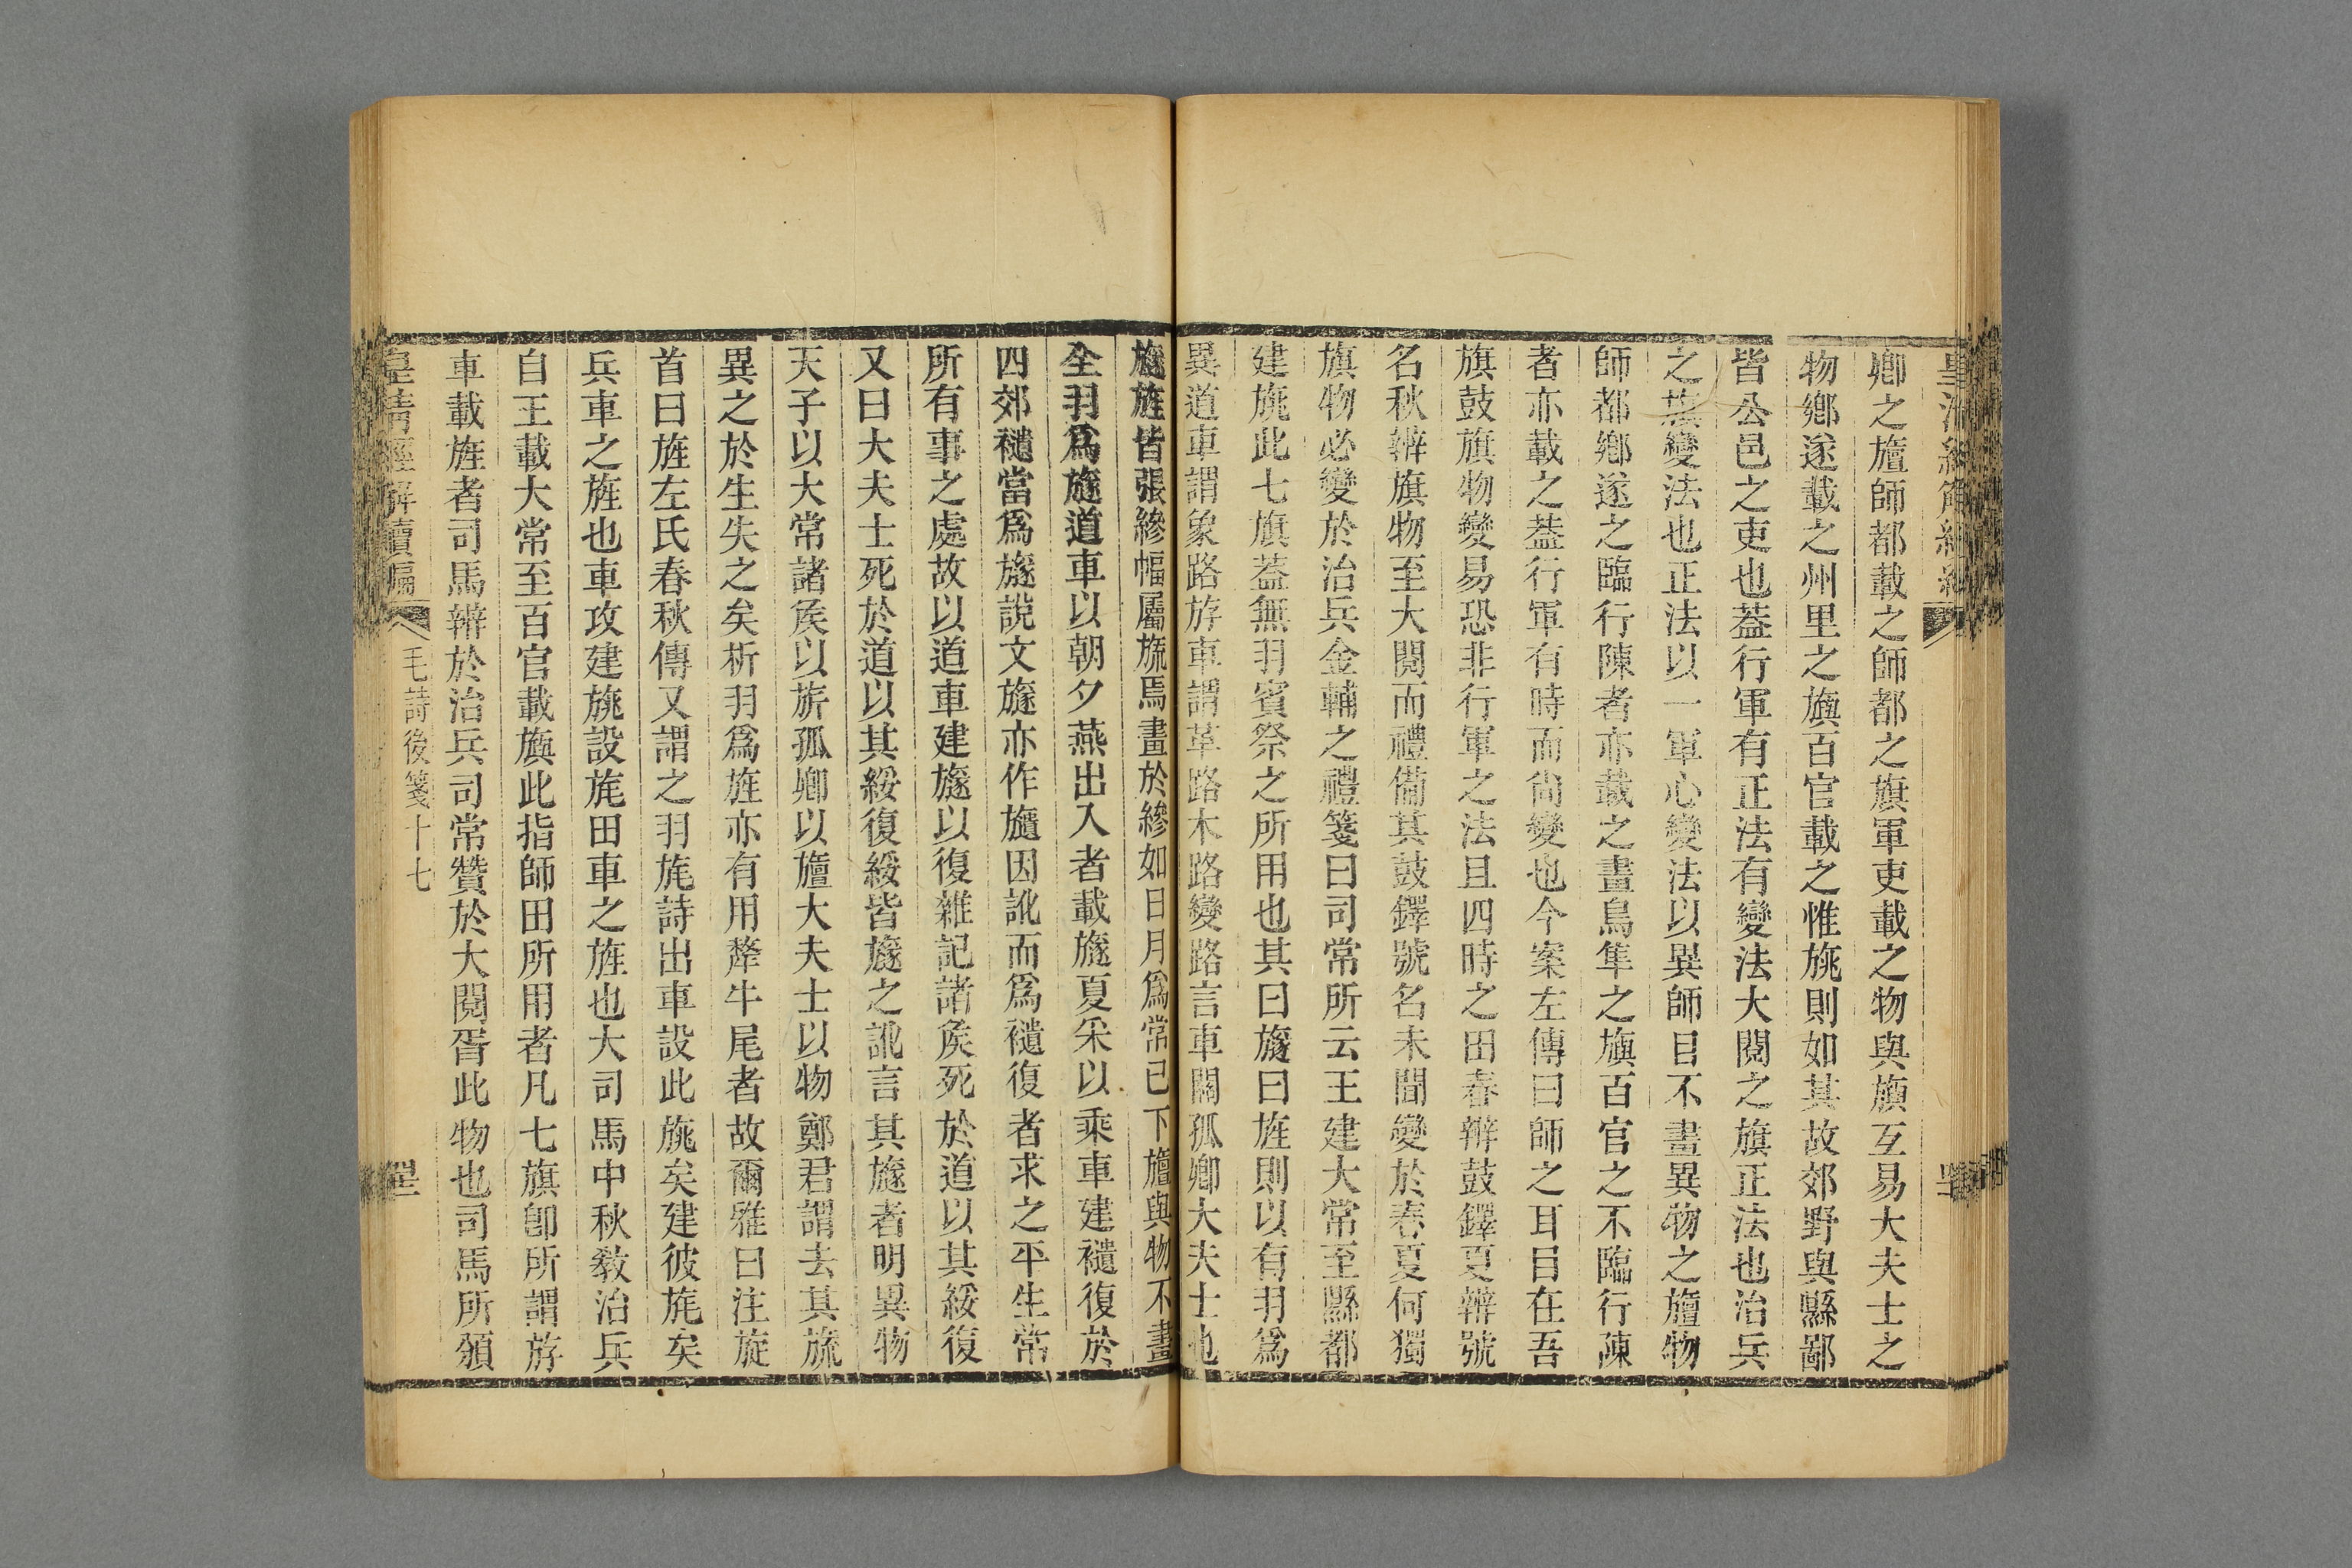 卿之旜師都載之師都之旗軍吏載之物與旟互易大夫士之
物鄉遂載之州里之旟百官載之惟旐則如其故郊野與縣鄙
皆公邑之吏也蓋行軍有正法有變法大閱之旗正法也治兵
之旗變法也正法以一軍心變法以異師目不畫異物之旜物
師都鄉遂之臨行陳者亦載之畫鳥隼之旟百官之不臨行陳
者亦載之葢行軍有時而尙變也今案左傳曰師之耳目在吾
旗鼓旗物變易恐非行軍之法且四時之田春辨鼓鐸夏辨號
名秋辨旗物至大閱而禮備其鼓鐸號名未聞變於春夏何獨
旗物必變於治兵金輔之禮箋曰司常所云王建大常至縣都
建旐此七旗葢無羽賓祭之所用也其曰旞曰旌則以有羽爲
異道車謂象路斿車謂革路木路變路言車關孤卿大夫士也
旞旌皆張縿幅屬旒焉畫於縿如日月爲常已下旜與物不畫
全羽爲旞道車以朝夕燕出入者載旞夏采以乘車建䙡復於
四郊䙡當爲旞說文旞亦作旜因訛而爲䙡復者求之平生常
所有事之處故以道車建旞以復雜記諸矦死於道以其綏復
又曰大夫士死於道以其綏復綏皆旞之訛言其旞者明異物
天子以大常諸矦以旂孤卿以旜大夫士以物鄭君謂去其旒
異之於生失之矣析羽爲旌亦有用犛牛尾者故爾雅曰注旄
首曰旌左氏春秋傳又謂之羽旄詩出車設此旐矣建彼旄矣
兵車之旌也車攻建旐設旄田車之旌也大司馬中秋敎治兵
自王載大常至百官載旟此指師田所用者凡七旗卽所謂斿
車載旌者司馬辨於治兵司常贊於大閱胥此物也司馬所頒
皇淸經解續編
毛詩後箋十七